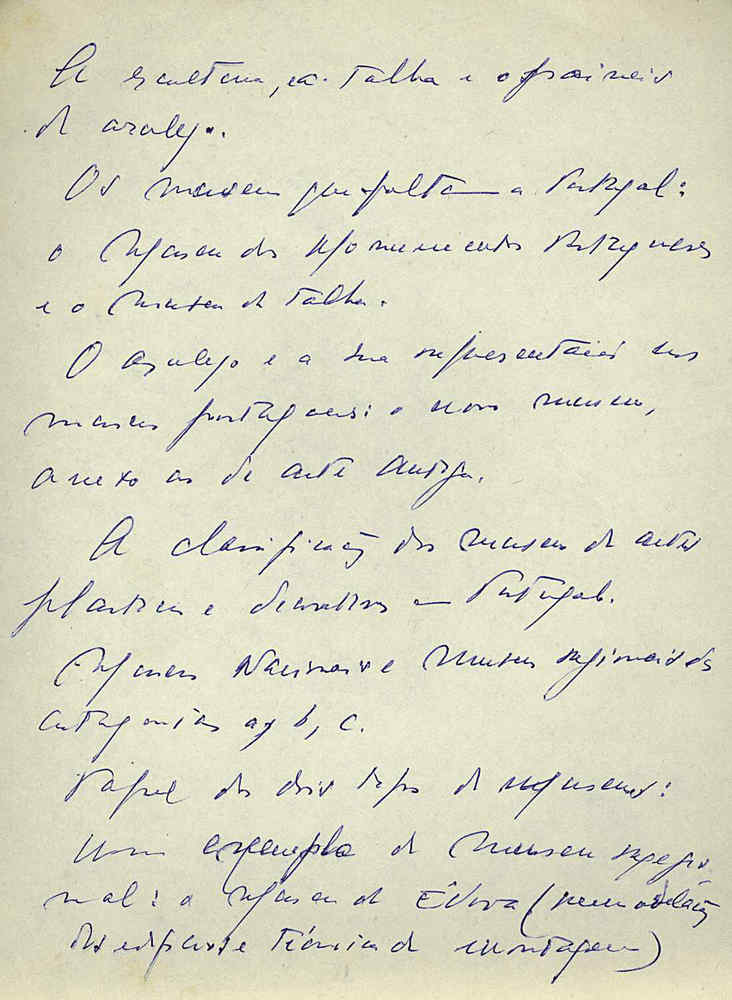 A escultura, a talha e os paineis
de azulejo.
Os museus que faltam a Portugal:
o Museu dos Monumentos Portugueses
e o Museu de talha.
O azulejo e a sua representação nos
museus portugueses: o novo museu,
anexo ao de arte antiga.
A classificação dos museus de artes
plasticas e decorativas em Portugal.
Museus Nacionais e Museus regionais das
categorias a, b, c.
Papel dos dois tipos de museus:
um exemplo de Museu regio
nal: o Museu de Évora (remodelação
do edificio e técnica de montagem)